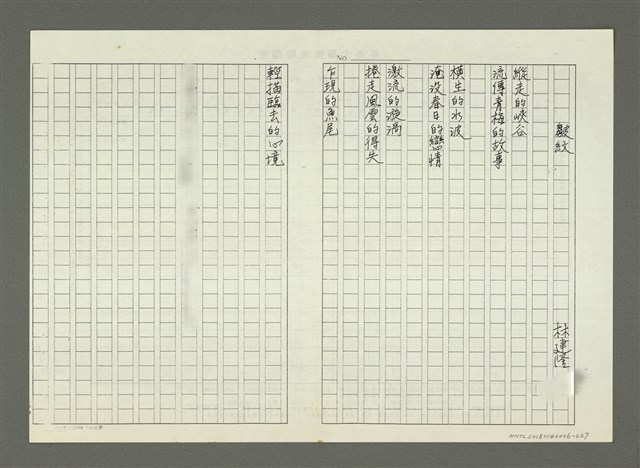 皺紋
林建隆
縱走的峽谷
流傳青梅的故事
橫生的水波
淹没春日的戀情
激流的漩渦
捲走風雲的得失
乍現的魚尾
輕描臨去的心境
NO.